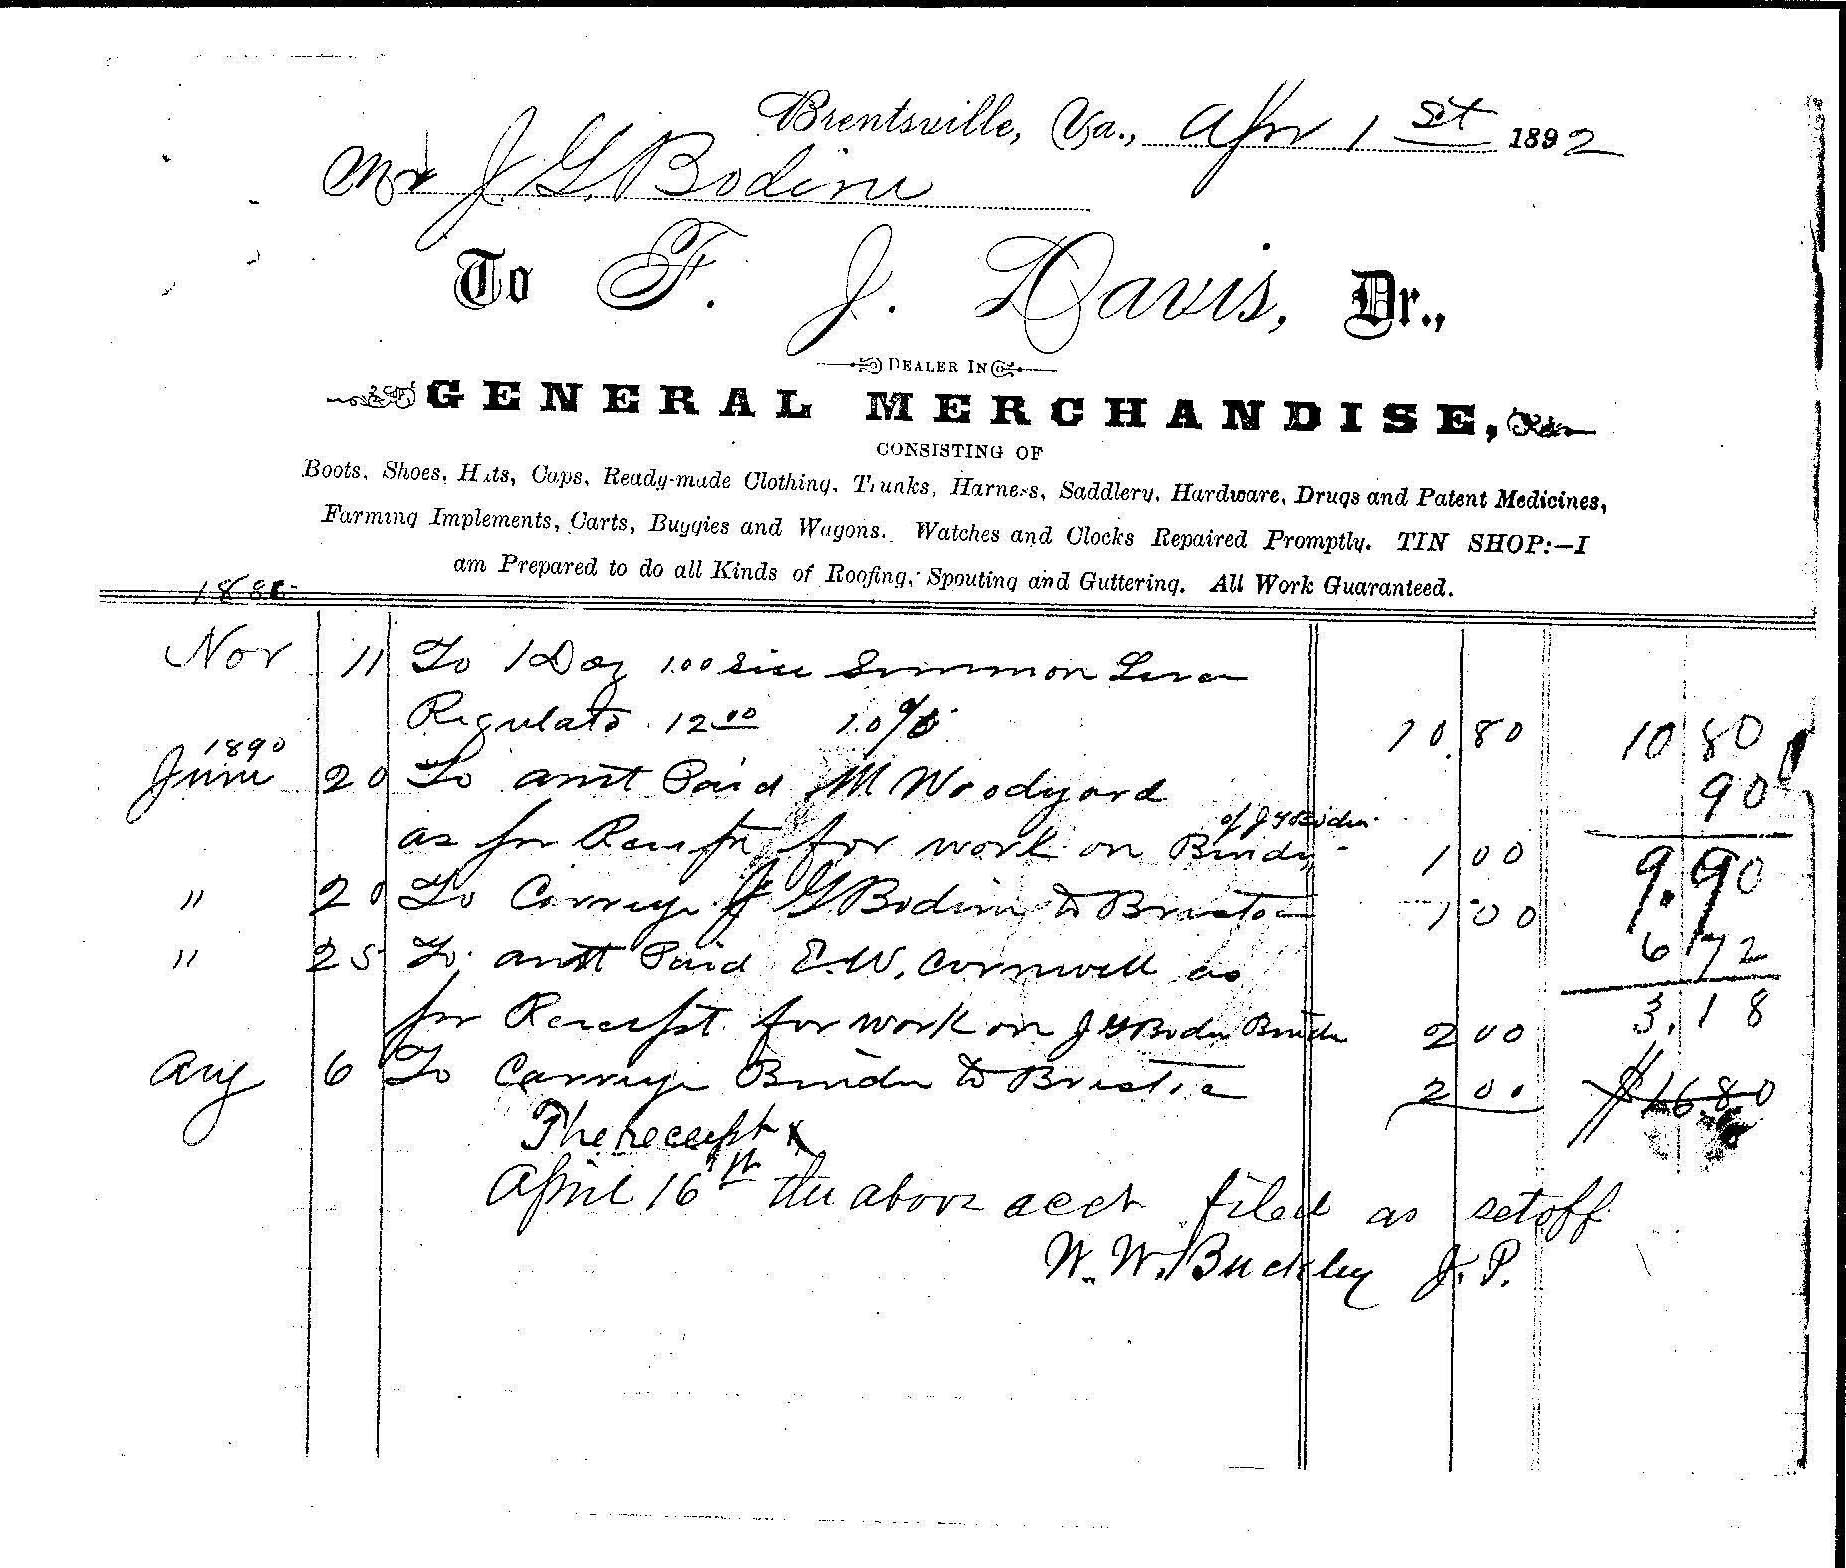 Brentsville, Va., Apr 1st 1892
Mr J. G. Bodine
To F. J. Davis, Dr.,
DEALER IN
GENERAL MERCHANDISE,
CONSISTING OF
Boots, Shoes, Hats, Caps, Ready-made Clothing, Trunks, Harness, Saddlery, Hardware, Drugs and Patent Medicines,
Farming Implements, Carts, Buggies and Wagons. Watches and Clocks Repaired Promptly. TIN SHOP:—I
am Prepared to do all Kinds of Roofing, Spouting and Guttering. All Work Guaranteed.
Nov 11 To 1 Doz 1.00 Size Simmon Liver
Regulator 12 00 10% 10.80 10 80
1890
June 20 To amt Paid M Woodyard 90
of J G Bodin
as pr Receipt for work on Bindr 1 00 9.90
" 20 To Carrye J G Bodine to Bristoe 1 00
" 25 To amt Paid E.W. Cornwell as 6 72
pr Receipt for work on J G Bodin Binde 2 00 3.18
Aug 6 To Carrye Binder to Bristoe 2 00 $16 80
The receipt x
April 16th the above acct filed as setoff
W. W. Buckley J. P.